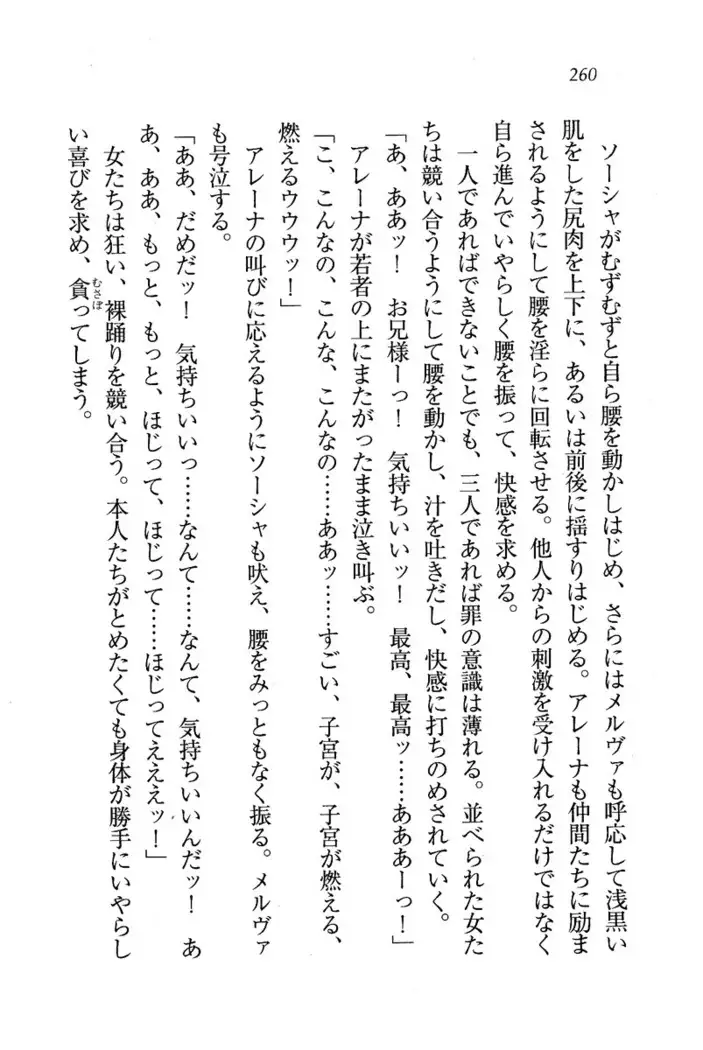 260
ソーシャがむずむずと自ら腰を動かしはじめ、さらにはメルヴァも呼応して浅黒い
肌をした尻肉を上下に、あるいは前後に揺すりはじめる。アレーナも仲間たちに励ま
されるようにして腰を淫らに回転させる。他人からの刺激を受け入れるだけではなく
自ら進んでいやらしく腰を振って、快感を求める。
一人であればできないことでも、三人であれば罪の意識は薄れる。並べられた女た
ちは競い合うようにして腰を動かし、汁を吐きだし、快感に打ちのめされていく。
「あ、ああッ！　お兄様ーっ！　気持ちいいッ！　最高、最高ッ……あああーっ！」
アレーナが若者の上にまたがったまま泣き叫ぶ。
「こ、こんなの、こんな、こんなの……ああッ……すごい、子宮が、子宮が燃える、
燃えるウウウッ！」
アレーナの叫びに応えるようにソーシャも吠え、腰をみっともなく振る。メルヴァ
も号泣する。
「ああ、だめだッ！　気持ちいいっ……なんて……なんて、気持ちいいんだッ！　あ
あ、ああ、もっと、もっと、ほじって、ほじって……ほじってえええッ！」
女たちは狂い、裸踊りを競い合う。本人たちがとめたくても身体が勝手にいやらし
い喜びを求め、貪（むさぼ）ってしまう。